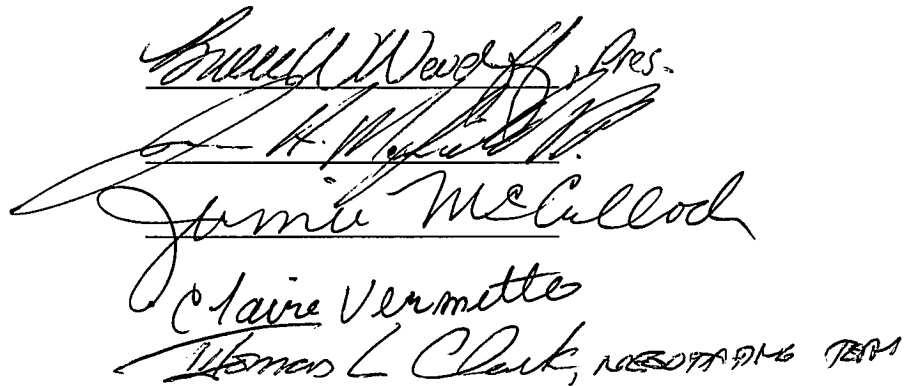 W. Wood, Pres.
H.
Jamie McCulloch
Claire Vermette
Thomas L Clark, NEGOTIATING TEAM